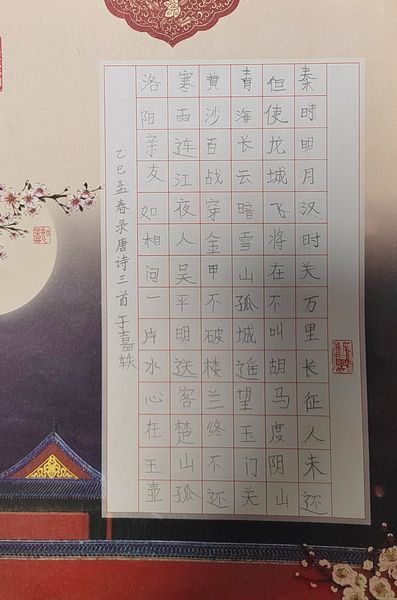 秦时明月汉时关万里长征人未还
但使龙城飞将在不叫胡马度阴山
青海长云暗雪山孤城遥望玉门关
黄沙百战穿金甲不破楼兰终不还
寒雨连江夜人吴平明送客楚山孤
洛阳亲友如相问一片水心在玉壶
乙巳孟春录唐诗三首于嘉轶